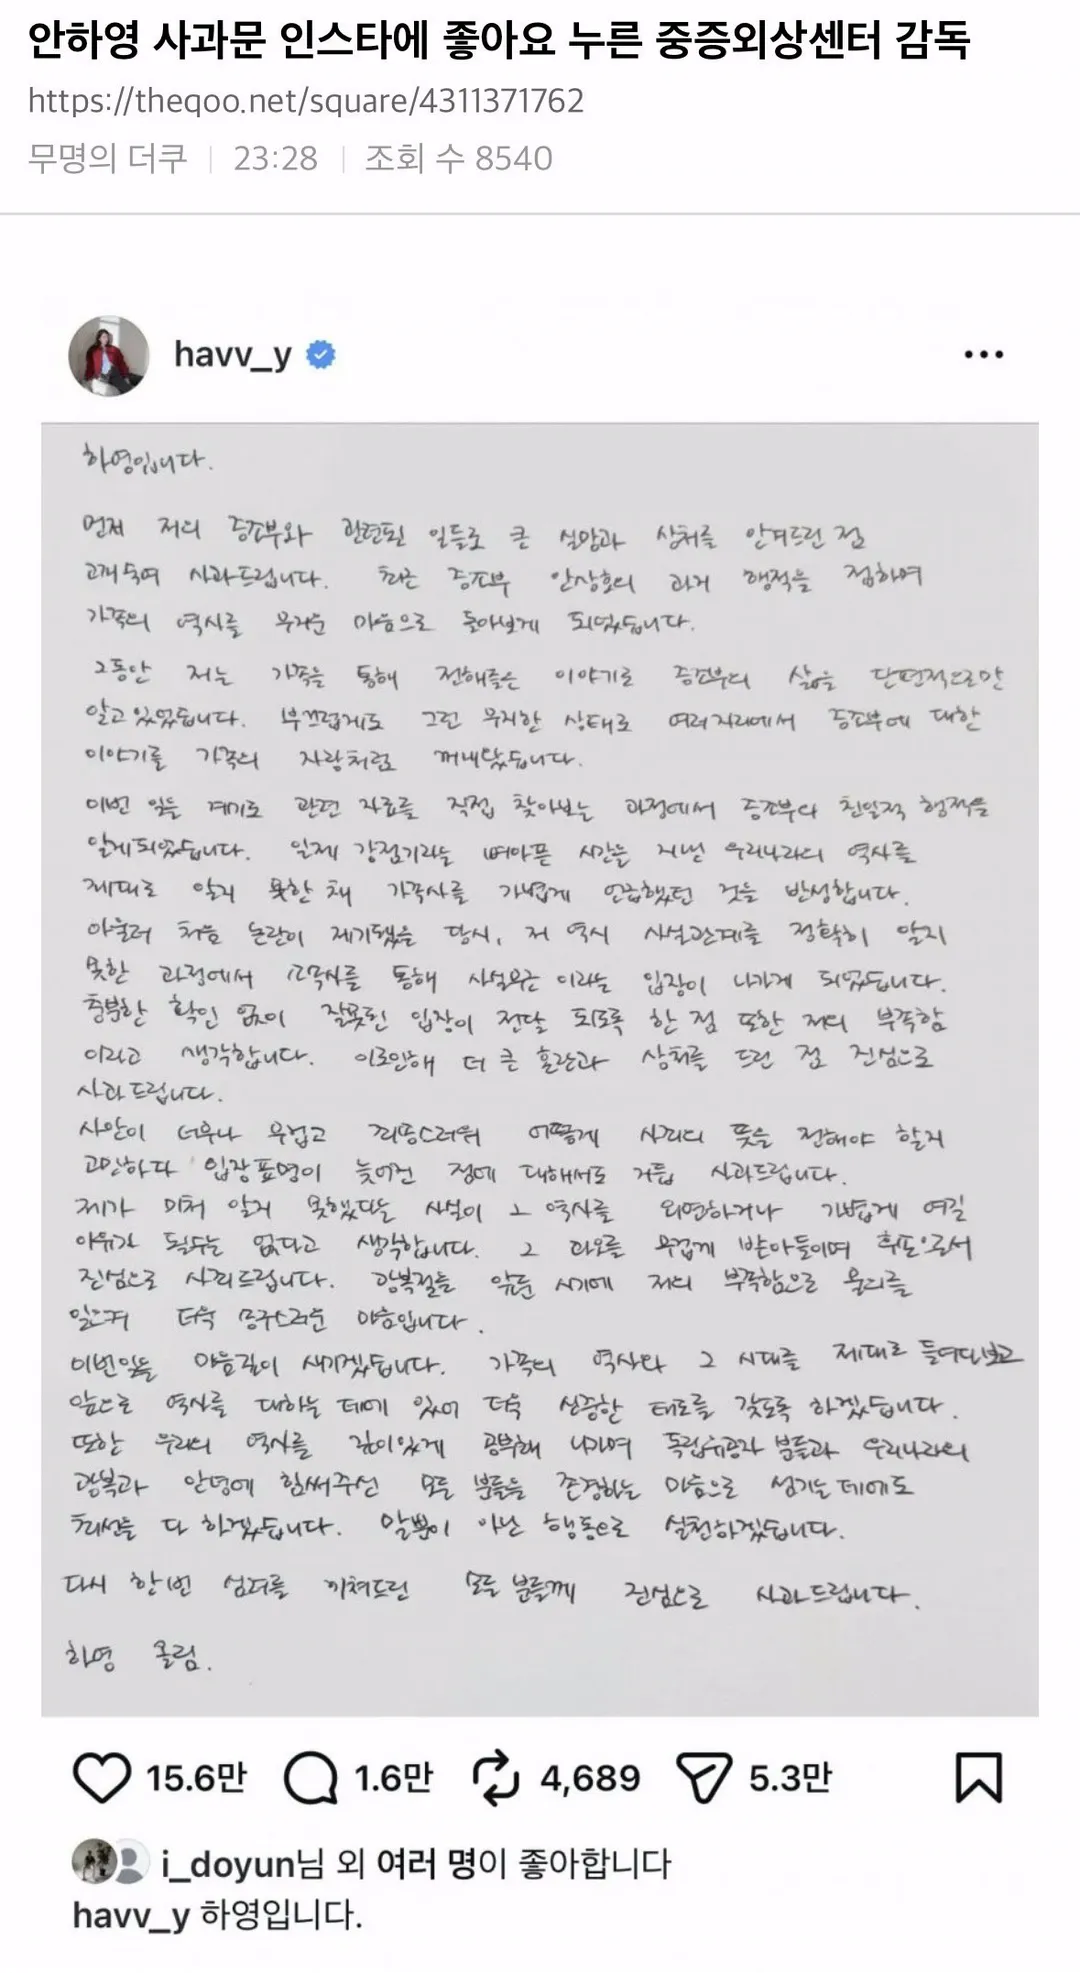 안하영 사과문 인스타에 좋아요 누른 중증외상센터 감독
https://theqoo.net/square/4311371762
무명의 더쿠 | 23:28 | 조회 수 8540
havv_y
하영입니다.
먼저 저의 증조부와 관련된 일들로 큰 실망과 상처를 안겨드린 점
고개숙여 사과드립니다. 최근 증조부 안상호의 과거 행적을 접하며
가족의 역사를 무거운 마음으로 돌아보게 되었습니다.
그동안 저는 가족을 통해 전해들은 이야기로 증조부의 삶을 단편적으로만
알고 있었습니다. 부끄럽게도 그런 무지한 상태로 여러 자리에서 증조부에 대한
이야기를 가족의 자랑처럼 꺼내왔습니다.
이번 일을 계기로 관련 자료를 직접 찾아보는 과정에서 증조부의 친일적 행적을
알게되었습니다. 일제 강점기라는 뼈아픈 시간을 지낸 우리나라의 역사를
제대로 알지 못한 채 가족사를 가볍게 언급했던 것을 반성합니다.
아울러 처음 논란이 제기됐을 당시, 저 역시 사실관계를 정확히 알지
못한 과정에서 소속사를 통해 사실무근이라는 입장이 나가게 되었습니다.
충분한 확인 없이 잘못된 입장이 전달 되도록 한 점 또한 저의 부족함
이라고 생각합니다. 이로인해 더 큰 혼란과 상처를 드린 점 진심으로
사과드립니다.
사안이 너무나 무겁고 죄송스러워 어떻게 사죄의 뜻을 전해야 할지
고민하다 입장표명이 늦어진 점에 대해서도 거듭 사과드립니다.
제가 미처 알지 못했다는 사실이 그 역사를 외면하거나 가볍게 여길
이유가 될수는 없다고 생각합니다. 그 과오를 무겁게 받아들이며 후손으로서
진심으로 사죄드립니다. 광복절을 앞둔 시기에 저의 부족함으로 물의를
일으켜 더욱 송구스러운 마음입니다.
이번일을 마음깊이 새기겠습니다. 가족의 역사와 그 시대를 제대로 들여다보고
앞으로 역사를 대하는 데에 있어 더욱 신중한 태도를 갖도록 하겠습니다.
또한 우리의 역사를 깊이있게 공부해 나가며 독립유공자 분들과 우리나라의
광복과 안녕에 힘써주신 모든 분들을 존경하는 마음으로 섬기는 데에도
최선을 다 하겠습니다. 말뿐이 아닌 행동으로 실천하겠습니다.
다시 한번 심려를 끼쳐드린 모든 분들께 진심으로 사과드립니다.
하영 올림.
15.6만 1.6만 4,689 5.3만
i_doyun님 외 여러 명이 좋아합니다
havv_y 하영입니다.